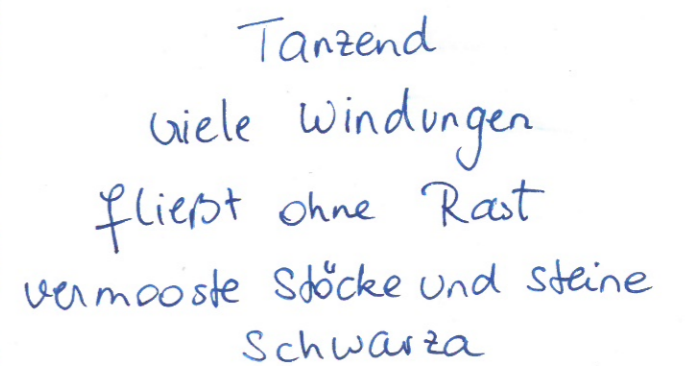 Tanzend
viele Windungen
fließt ohne Rast
vermooste Stöcke und Steine
Schwarza